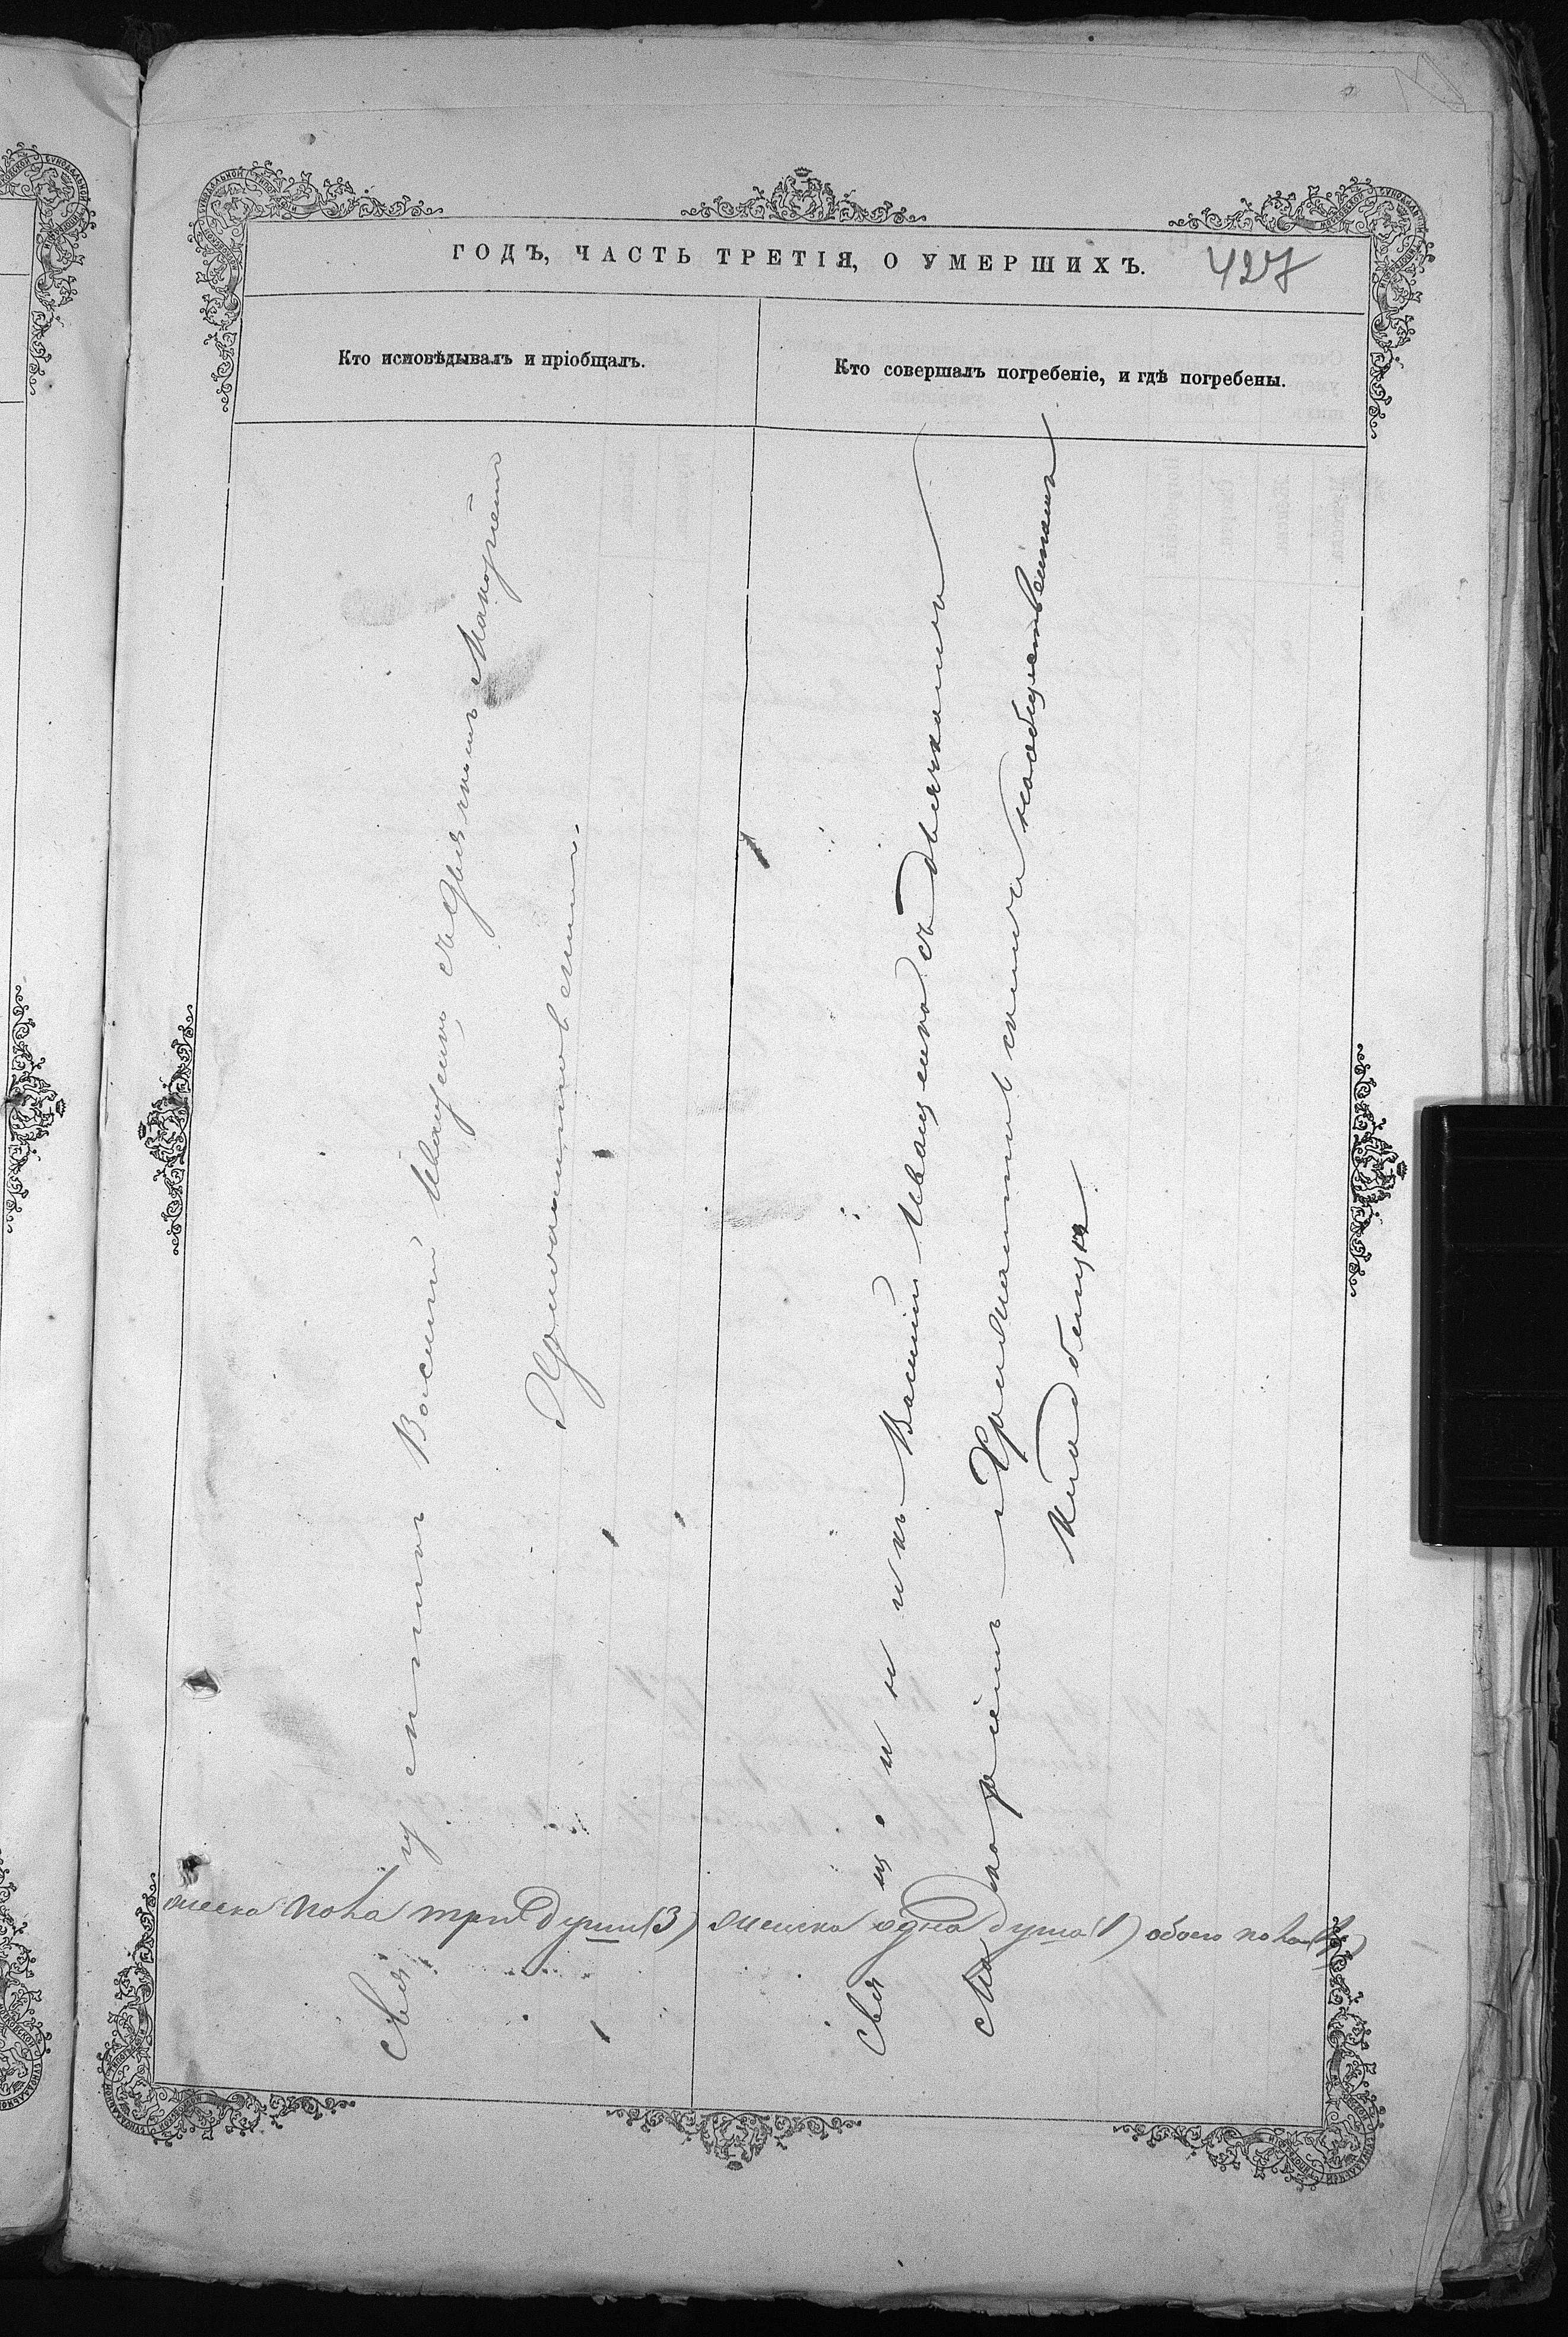 ГОДЪ, ЧАСТЬ ТРЕТІЯ, О УМЕРШИХЪ. 427
Кто исповѣдывалъ и пріобщалъ.
Кто совершалъ погребеніе, и гдѣ погребены.
Священникъ Василій Иващенко съ дьячкомъ Макаріемъ
Хрисанѳовскимъ
Священникъ Василій Иващенко съ дьячкомъ
Макаріемъ на общественномъ
кладбищѣ
мужеска пола три души (3) женска одна душа (1) обоего пола (4)